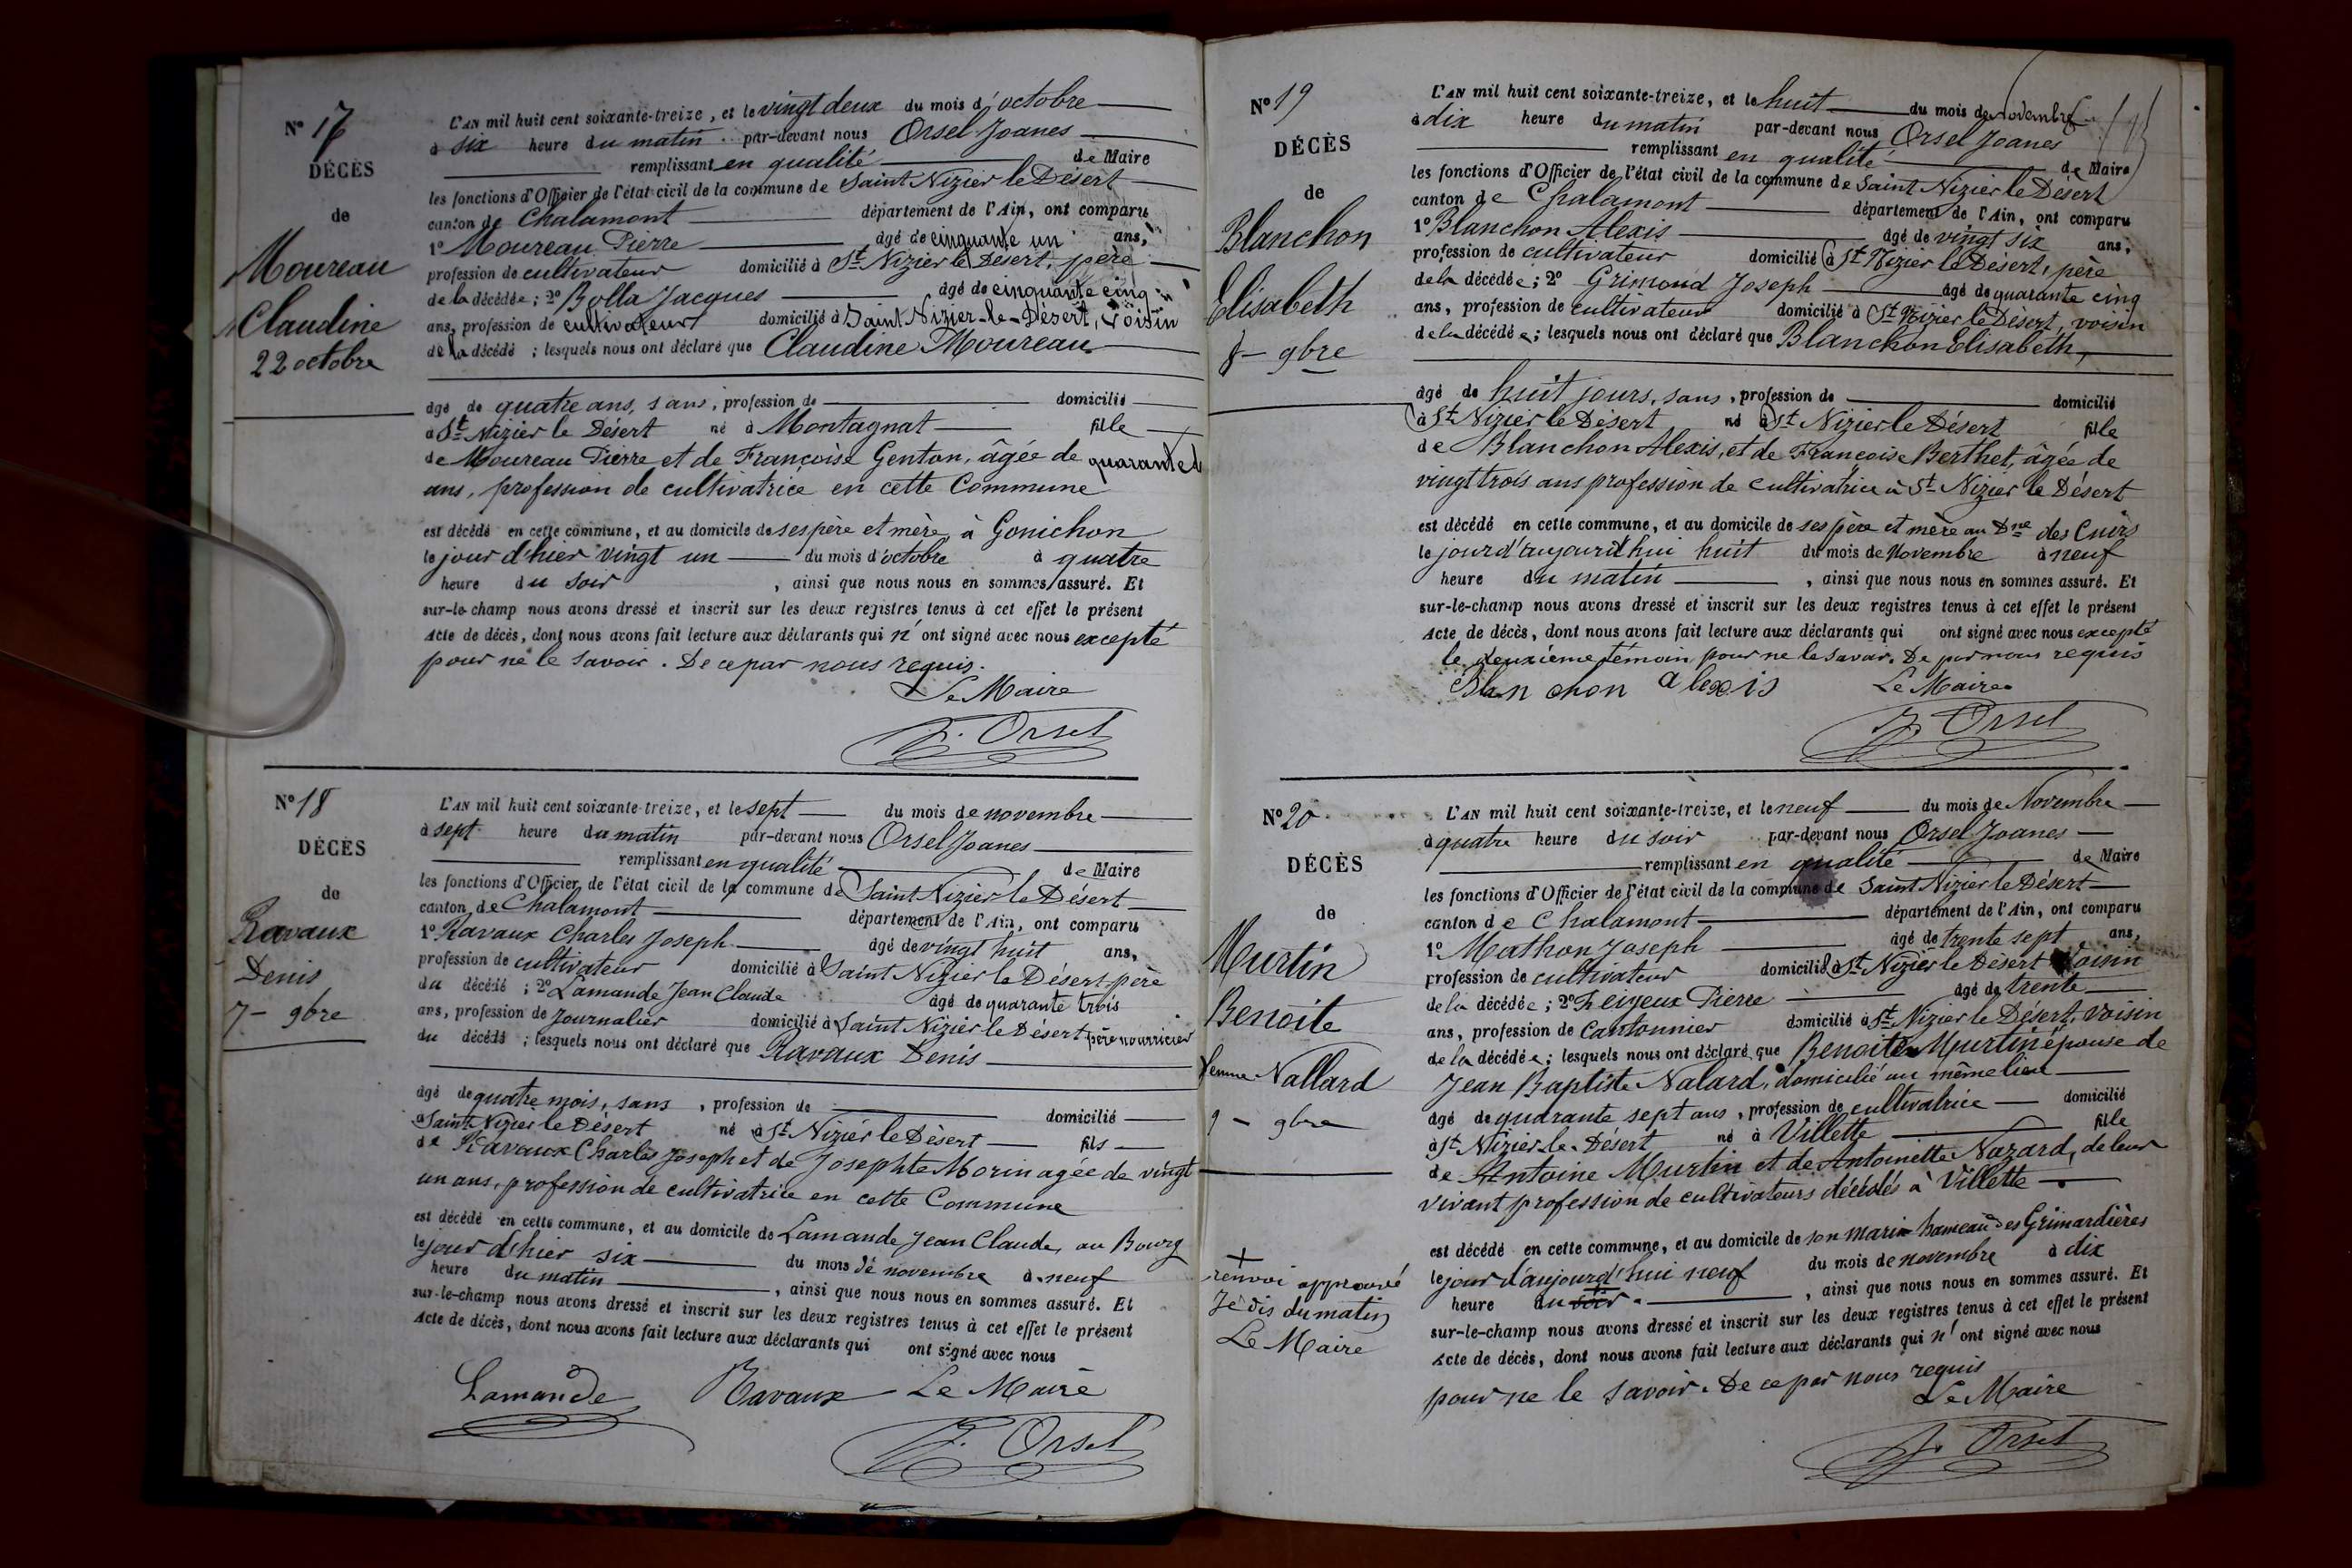 N° 17
DÉCÈS
de
Moureau
Claudine
22 octobre
L'AN mil huit cent soixante-treize, et le vingt deux du mois d'octobre
à six heure du matin par-devant nous Orsel Joanes
remplissant en qualité de Maire
les fonctions d'Officier de l'état civil de la commune de Saint Nizier le Désert
canton de Chalamont département de l'Ain, ont comparu
1° Moureau Pierre âgé de cinquante un ans,
profession de cultivateur domicilié à St Nizier le Désert, père
de la décédée; 2° Bolla Jacques âgé de cinquante cinq
ans, profession de cultivateur domicilié à Saint Nizier-le-Désert, voisin
de la décédé ; lesquels nous ont déclaré que Claudine Moureau
âgé de quatre ans, sans, profession de domicilié
à St Nizier le Désert né à Montagnat fille
de Moureau Pierre et de Françoise Genton, âgée de quarante
ans, profession de cultivatrice en cette Commune
est décédé en cette commune, et au domicile de ses père et mère, à Gonichon
le jour d'hier vingt un du mois d'octobre à quatre
heure du soir , ainsi que nous nous en sommes assuré. Et
sur-le-champ nous avons dressé et inscrit sur les deux registres tenus à cet effet le présent
Acte de décès, dont nous avons fait lecture aux déclarants qui n'ont signé avec nous excepté
pour ne le savoir. De ce par nous requis.
Le Maire
J. Orsel
N° 18
DÉCÈS
de
Ravaux
Denis
7 - 9bre
L'AN mil huit cent soixante-treize, et le sept du mois de novembre
à sept heure du matin par-devant nous Orsel Joanes
remplissant en qualité de Maire
les fonctions d'Officier de l'état civil de la commune de Saint Nizier le Désert
canton de Chalamont département de l'Ain, ont comparu
1° Ravaux Charles Joseph âgé de vingt huit ans,
profession de cultivateur domicilié à Saint Nizier le Désert, père
du décédé ; 2° Lamande Jean Claude âgé de quarante trois
ans, profession de Journalier domicilié à Saint Nizier le Désert père nourricier
du décédé ; lesquels nous ont déclaré que Ravaux Denis
âgé de quatre mois, sans , profession de domicilié
à Saint Nizier le Désert né à St Nizier le Désert fils
de Ravaux Charles Joseph et de Josephte Morin agée de vingt
un ans, profession de cultivatrice en cette Commune
est décédé en cette commune, et au domicile de Lamande Jean Claude, au Bourg
le jour d'hier six du mois de novembre à neuf
heure du matin , ainsi que nous nous en sommes assuré. Et
sur-le-champ nous avons dressé et inscrit sur les deux registres tenus à cet effet le présent
Acte de décès, dont nous avons fait lecture aux déclarants qui ont signé avec nous
Lamande Ravaux Le Maire
J. Orsel
N° 19
DÉCÈS
de
Blanchon
Elisabeth
8 - 9bre
L'AN mil huit cent soixante-treize, et le huit du mois de Novembre
à dix heure du matin par-devant nous Orsel Joanes
remplissant en qualité de Maire
les fonctions d'Officier de l'état civil de la commune de Saint Nizier le Désert
canton de Chalamont département de l'Ain, ont comparu
1° Blanchon Alexis âgé de vingt six ans,
profession de cultivateur domicilié à St Nizier le Désert, père
de la décédée; 2° Grimond Joseph âgé de quarante cinq
ans, profession de cultivateur domicilié à St Nizier le Désert, voisin
de la décédée; lesquels nous ont déclaré que Blanchon Elisabeth,
âgé de huit jours, sans , profession de domicilié
à St Nizier le Désert né à St Nizier le Désert fille
de Blanchon Alexis, et de Françoise Berthet, âgée de
vingt trois ans profession de cultivatrice à St Nizier le Désert
est décédé en cette commune, et au domicile de ses père et mère au Dne des Cuirs
le jour d'aujourd'hui huit du mois de Novembre à neuf
heure du matin , ainsi que nous nous en sommes assuré. Et
sur-le-champ nous avons dressé et inscrit sur les deux registres tenus à cet effet le présent
Acte de décès, dont nous avons fait lecture aux déclarants qui ont signé avec nous excepté
le deuxième témoin pour ne le savoir. De par nous requis
Blanchon alexis Le Maire
J. Orsel
N° 20
DÉCÈS
de
Murtin
Benoite
femme Nallard
9 - 9bre
L'AN mil huit cent soixante-treize, et le neuf du mois de Novembre
à quatre heure du soir par-devant nous Orsel Joanes
remplissant en qualité de Maire
les fonctions d'Officier de l'état civil de la commune de Saint Nizier le Désert
canton de Chalamont département de l'Ain, ont comparu
1° Mathon Joseph âgé de trente sept ans,
profession de cultivateur domicilié à St Nizier le Désert voisin
de la décédée; 2° Feigeux Pierre âgé de trente
ans, profession de Cantonnier domicilié à St Nizier le Désert, voisin
de la décédée; lesquels nous ont déclaré que Benoite Murtin épouse de
Jean Baptiste Nalard, domicilié au même lieu
âgé de quarante sept ans, profession de cultivatrice domicilié
à St Nizier-le-Désert né à Villette fille
de Antoine Murtin et de Antoinette Nazard, de leur
vivant profession de cultivateurs décédés à Villette
est décédé en cette commune, et au domicile de son mari hameau des Grimardières
le jour d'aujourd'hui neuf du mois de novembre à dix
heure du soir + , ainsi que nous nous en sommes assuré. Et
sur-le-champ nous avons dressé et inscrit sur les deux registres tenus à cet effet le présent
Acte de décès, dont nous avons fait lecture aux déclarants qui n'ont signé avec nous
pour ne le savoir. De ce par nous requis
Le Maire
J. Orsel
+
renvoi approuvé
Je dis du matin
Le Maire